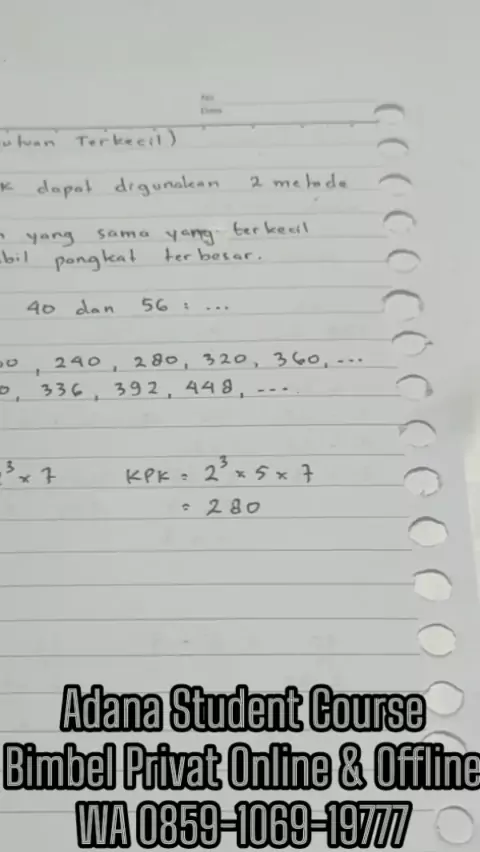 No
Date
utuan Terkecil)
K dapat digunakan 2 metode
n yang sama yang terkecil
bil pangkat terbesar.
40 dan 56 : ...
00, 240, 280, 320, 360, ...
0, 336, 392, 448, ....
³ × 7 KPK = 2³ × 5 × 7
= 280
Adana Student Course
Bimbel Privat Online & Offline
WA 0859-1069-19777